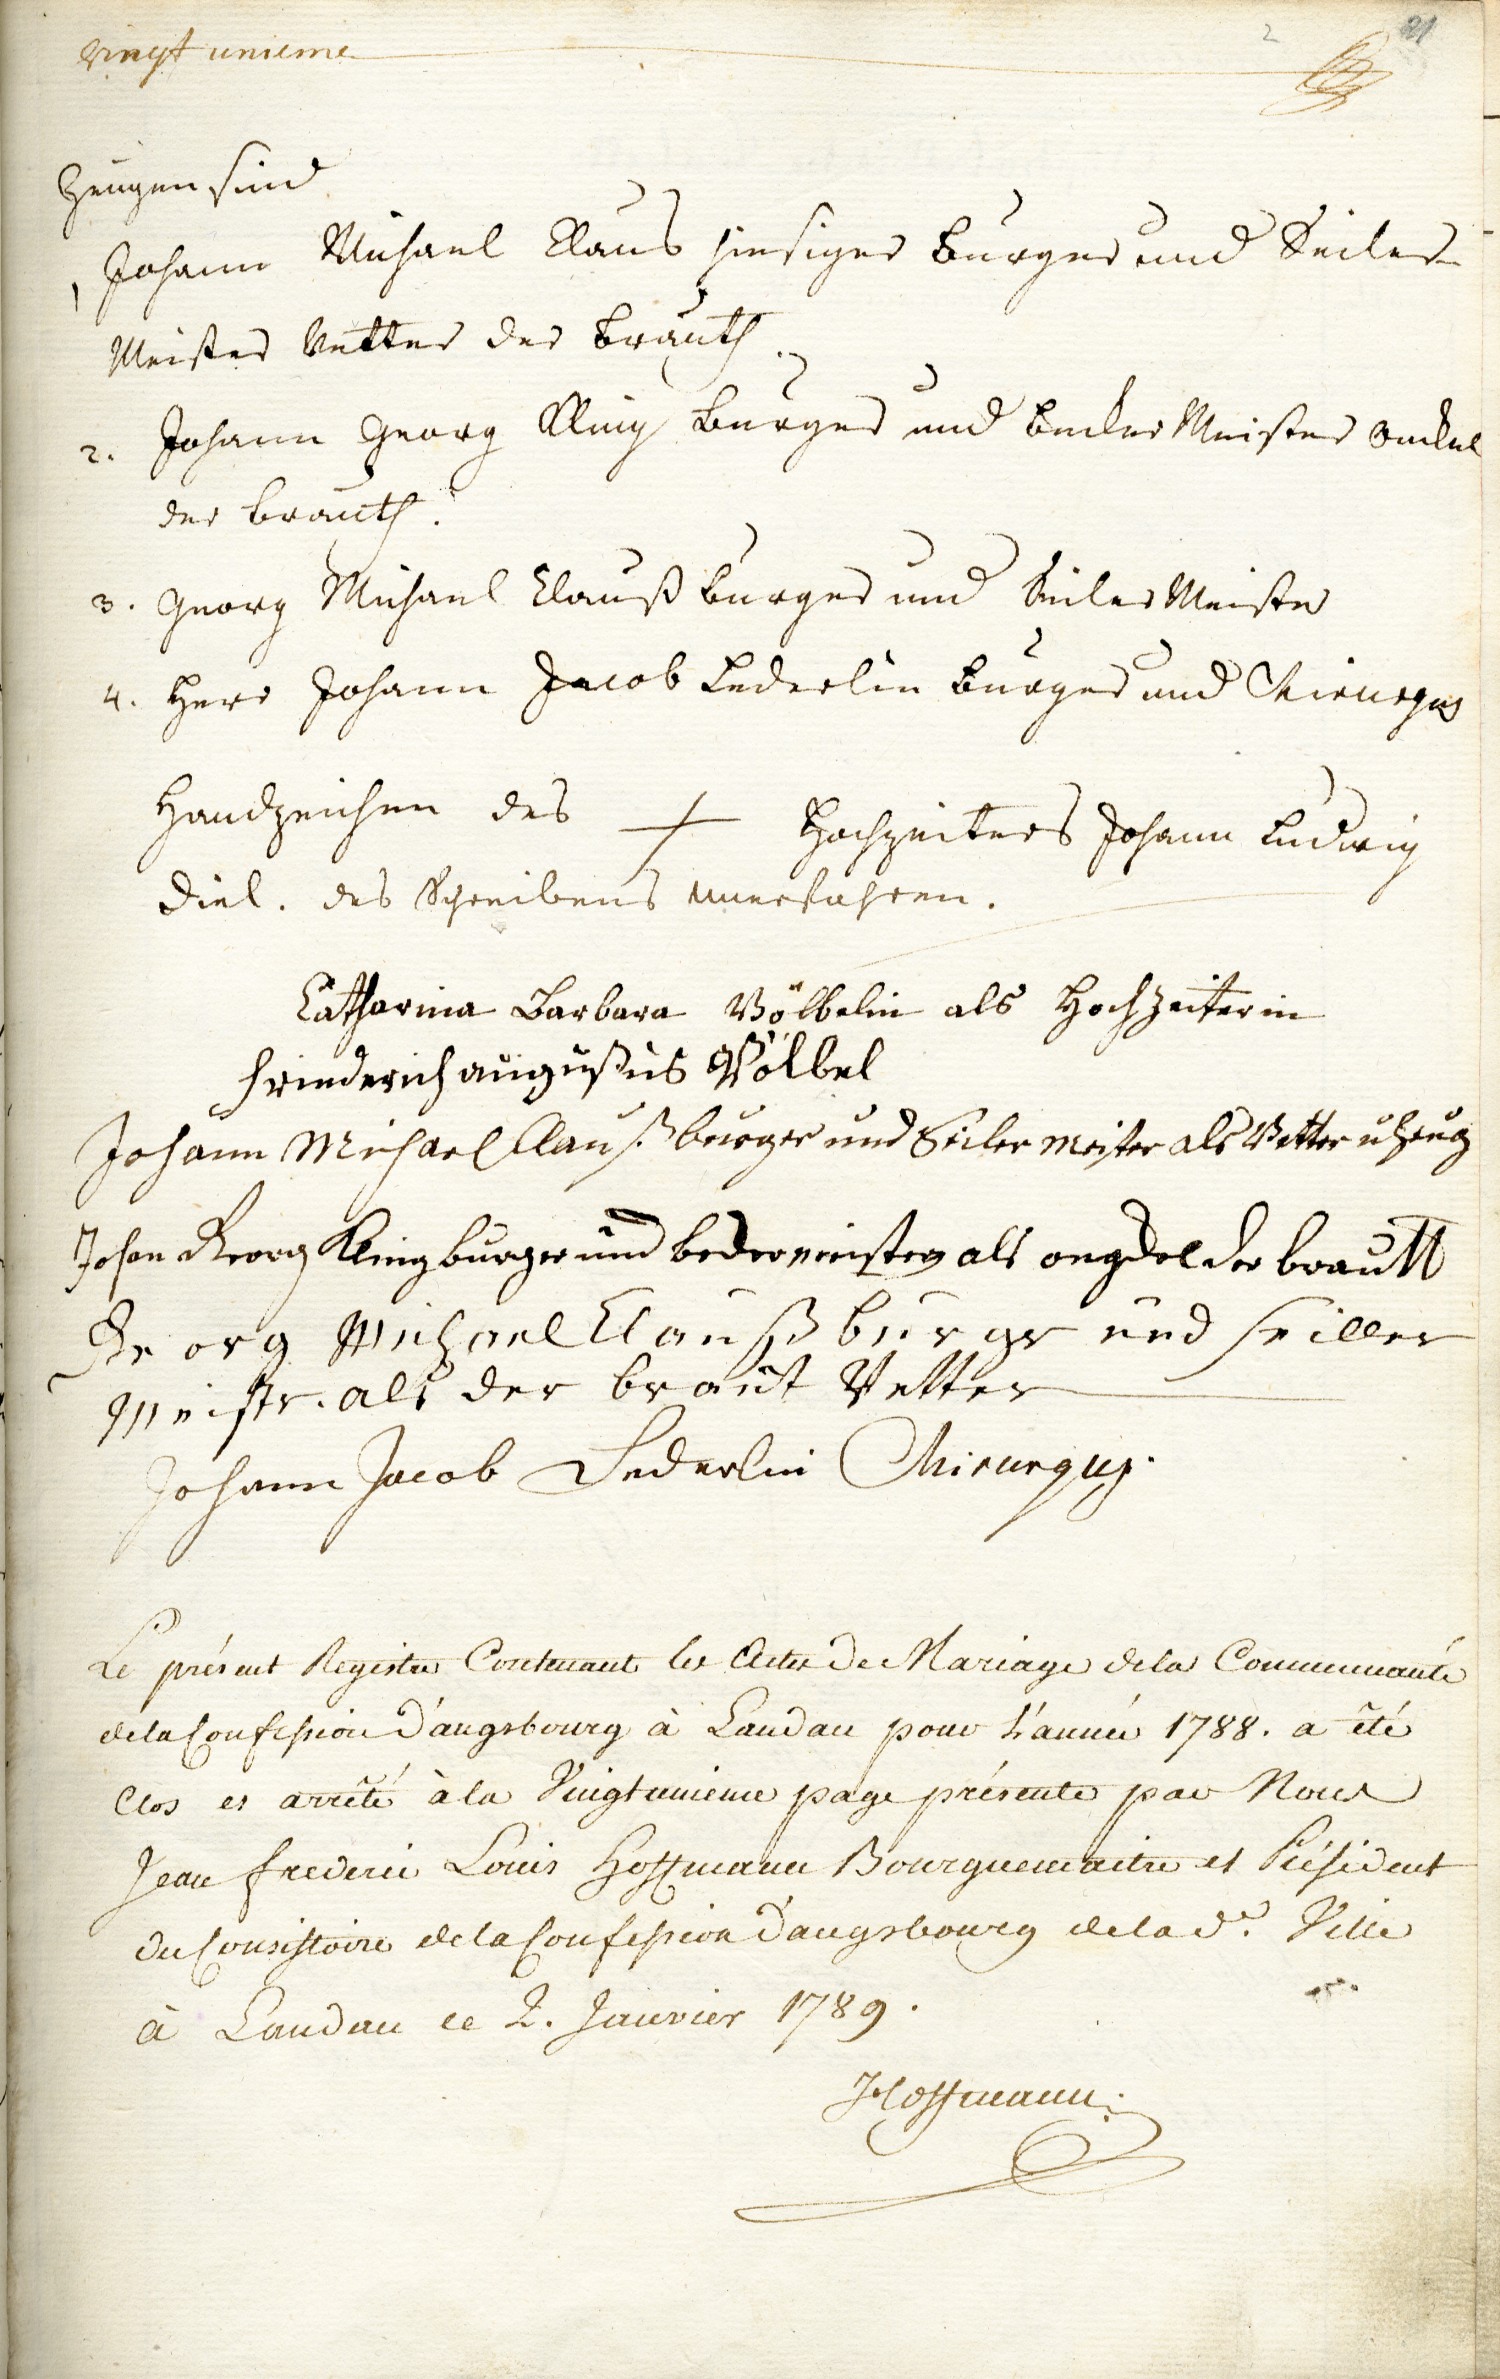 vingt unieme 2 21
Zeugen sind
1 Johann Michael Claus hiesiger Burger und Seiler
Meister Vetter der Brauth.
2. Johann Georg Kling Burger und Becker Meister Onckel
der Brauth.
3. Georg Michael Clauß Burger und Seiler Meister
4. Herr Johann Jacob Lederlin Burger und Chirurgus
Handzeichen des + Hochzeiters Johann Ludwig
Diel. des Schreibens unerfahren.
Catharina Barbara Völbelin als Hochzeiterin
Friederich augustus Völbel
Johann Michael Clauß burger und Seiler meister als Vetter u Zeug
Johan Georg Kling burger und beckermeister als ongckel der brautt
Georg Michael Clauß burgr und seiller
Meistr. als der braut Vetter
Johann Jacob Lederlin Chirurgus.
Le présent Registre Contenant les Actes De Mariage dela Communauté
dela Confession D'augsbourg à Landau pour L'année 1788. a été
Clos et arrêté à la Vingtunieme page présente par Nous
Jean frederic Louis Hoffmann Bourguemaitre et Président
Du Consistoire dela Confession D'augsbourg dela de. Ville
à Landau ce 2. Janvier 1789.
Hoffmann.